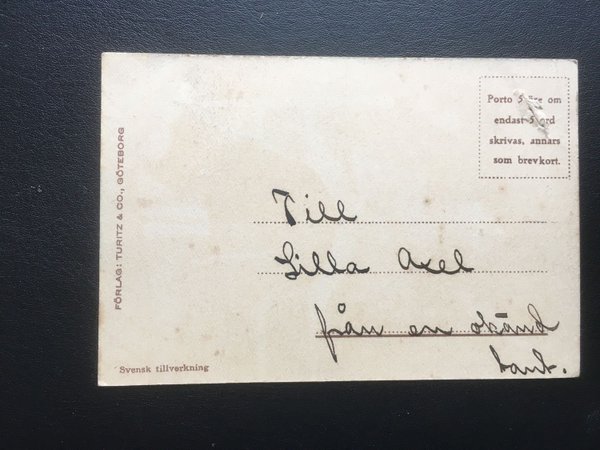 Porto 5 öre om
endast 5 ord
skrivas, annars
som brevkort.
FÖRLAG: TURITZ & CO., GÖTEBORG
Till
Lilla Axel
från en okänd
tant.
Svensk tillverkning